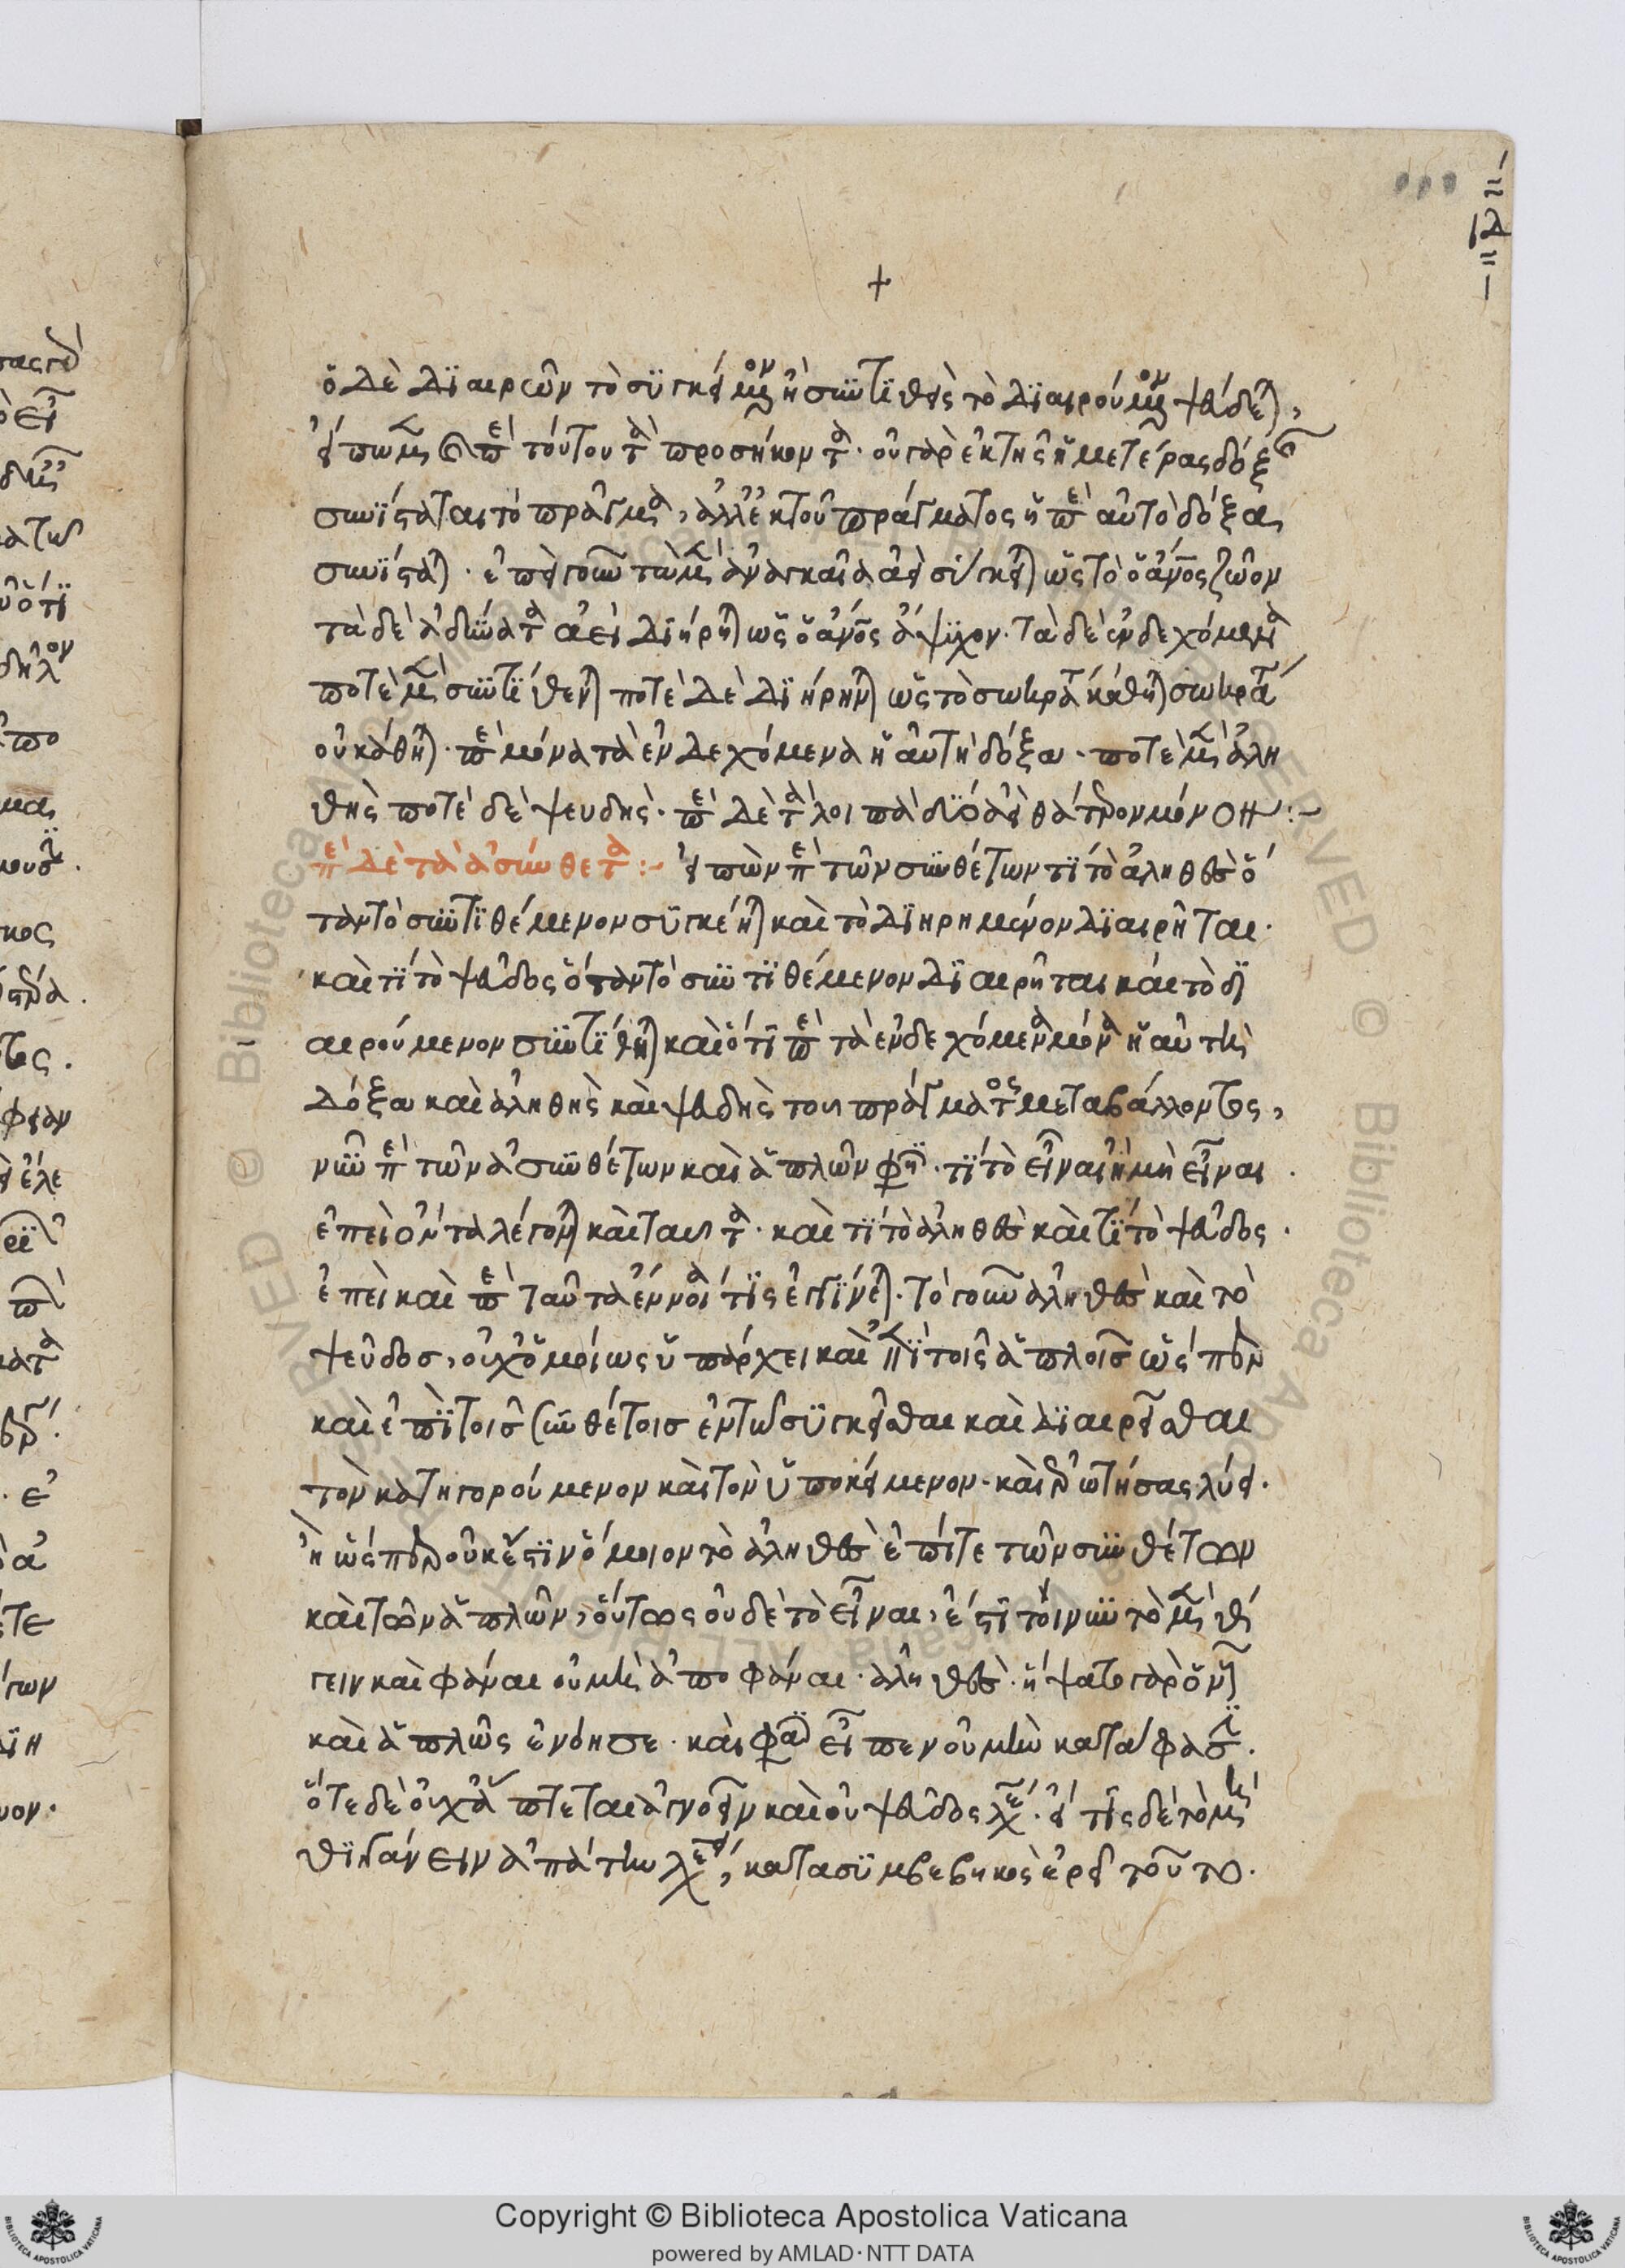 +
ὁ δὲ διαιρῶν τὸ συγκείμενον ἢ συντιθεὶς τὸ διαιρούμενον ψεύδεται,
τούτου τὰ προσήκοντα· οὐ γὰρ ἐκ τῆς ἡμετέρας δόξης
συνίσταται τὸ πρᾶγμα, ἀλλ' ἐκ τοῦ πράγματος ἡ περὶ αὐτὸ δόξα
συνίσταται· ἐπεὶ γοῦν τὰ μὲν ἀναγκαῖα ἀεὶ σύγκειται ὡς τὸ ὁ ἄνος ζῶον
τὰ δὲ ἀδύνατα ἀεὶ διήρηται ὡς ὁ ἄνος ἄψυχον· τὰ δὲ ἐνδεχόμενα
ποτὲ μὲν συντίθενται ποτὲ δὲ διήρηνται ὡς τὸ σωκράτης κάθηται σωκράτης
οὐ κάθηται· περὶ μόνα τὰ ἐνδεχόμενα ἡ αὐτὴ δόξα· ποτὲ μὲν ἀλη
θὴς ποτὲ δὲ ψευδής· περὶ δὲ τἆλλοι θάτερον μόνον :~
περὶ δὲ τὰ ἀσύνθετα :~ εἰπὼν περὶ τῶν συνθέτων τί τὸ ἀληθὲς ὅ
ταν τὸ συντιθέμενον συγκέηται καὶ τὸ διηρημένον διαιρῆται·
καὶ τί τὸ ψεῦδος ὅταν τὸ συντιθέμενον διαιρῆται καὶ τὸ δι
αιρούμενον συντίθηται καὶ ὅτι περὶ τὰ ἐνδεχόμενα μόνα ἡ αὐτὴ
δόξα καὶ ἀληθὴς καὶ ψευδὴς τοῦ πράγματος μεταβάλλοντος,
νῦν περὶ τῶν ἀσυνθέτων καὶ ἁπλῶν φησὶ· τί τὸ εἶναι ἢ μὴ εἶναι·
ἐπεὶ ὄντα λέγονται καὶ ταῦτα· καὶ τί τὸ ἀληθὲς καὶ τί τὸ ψεῦδος·
ἐπεὶ καὶ περὶ ταῦτα ἔννοιά τις ἐγγίνεται· τὸ γοῦν ἀληθὲς καὶ τὸ
ψεῦδοσ, οὐχ ὁμοίως ὑπάρχει καὶ ἐπὶ τοῖς ἁπλοῖσ ὥσπερ
καὶ ἐπὶ τοῖσ συνθέτοισ ἐν τῶ συγκεῖσθαι καὶ διαιρεῖσθαι
τὸν κατηγορούμενον καὶ τὸν ὑποκείμενον· καὶ ἐρωτήσας λύει·
ἢ ὥσπερ οὐκ ἔστιν ὅμοιον τὸ ἀληθὲς ἐπί τε τῶν συνθέτων
καὶ τῶν ἁπλῶν, οὕτως οὐδὲ τὸ εἶναι, ἔστι τοίνυν τὸ μὲν θί
γειν καὶ φάναι οὐ μὴν ἀποφάναι· ἀληθές· ἥψατο γὰρ ὁ νοῦς
καὶ ἁπλῶς ἐνόησε· καὶ φάσιν εἶπεν οὐ μὴν κατάφασιν.
ὅτε δὲ οὐχ ἅπτεται ἀγνοεῖν καὶ οὐ ψεῦδος λέγεται· εἴ τις δὲ τὸ μὴ
θιγάνειν ἀπάτην λέγει, κατασυμβεβηκὸς ἐρεῖ τοῦτο.